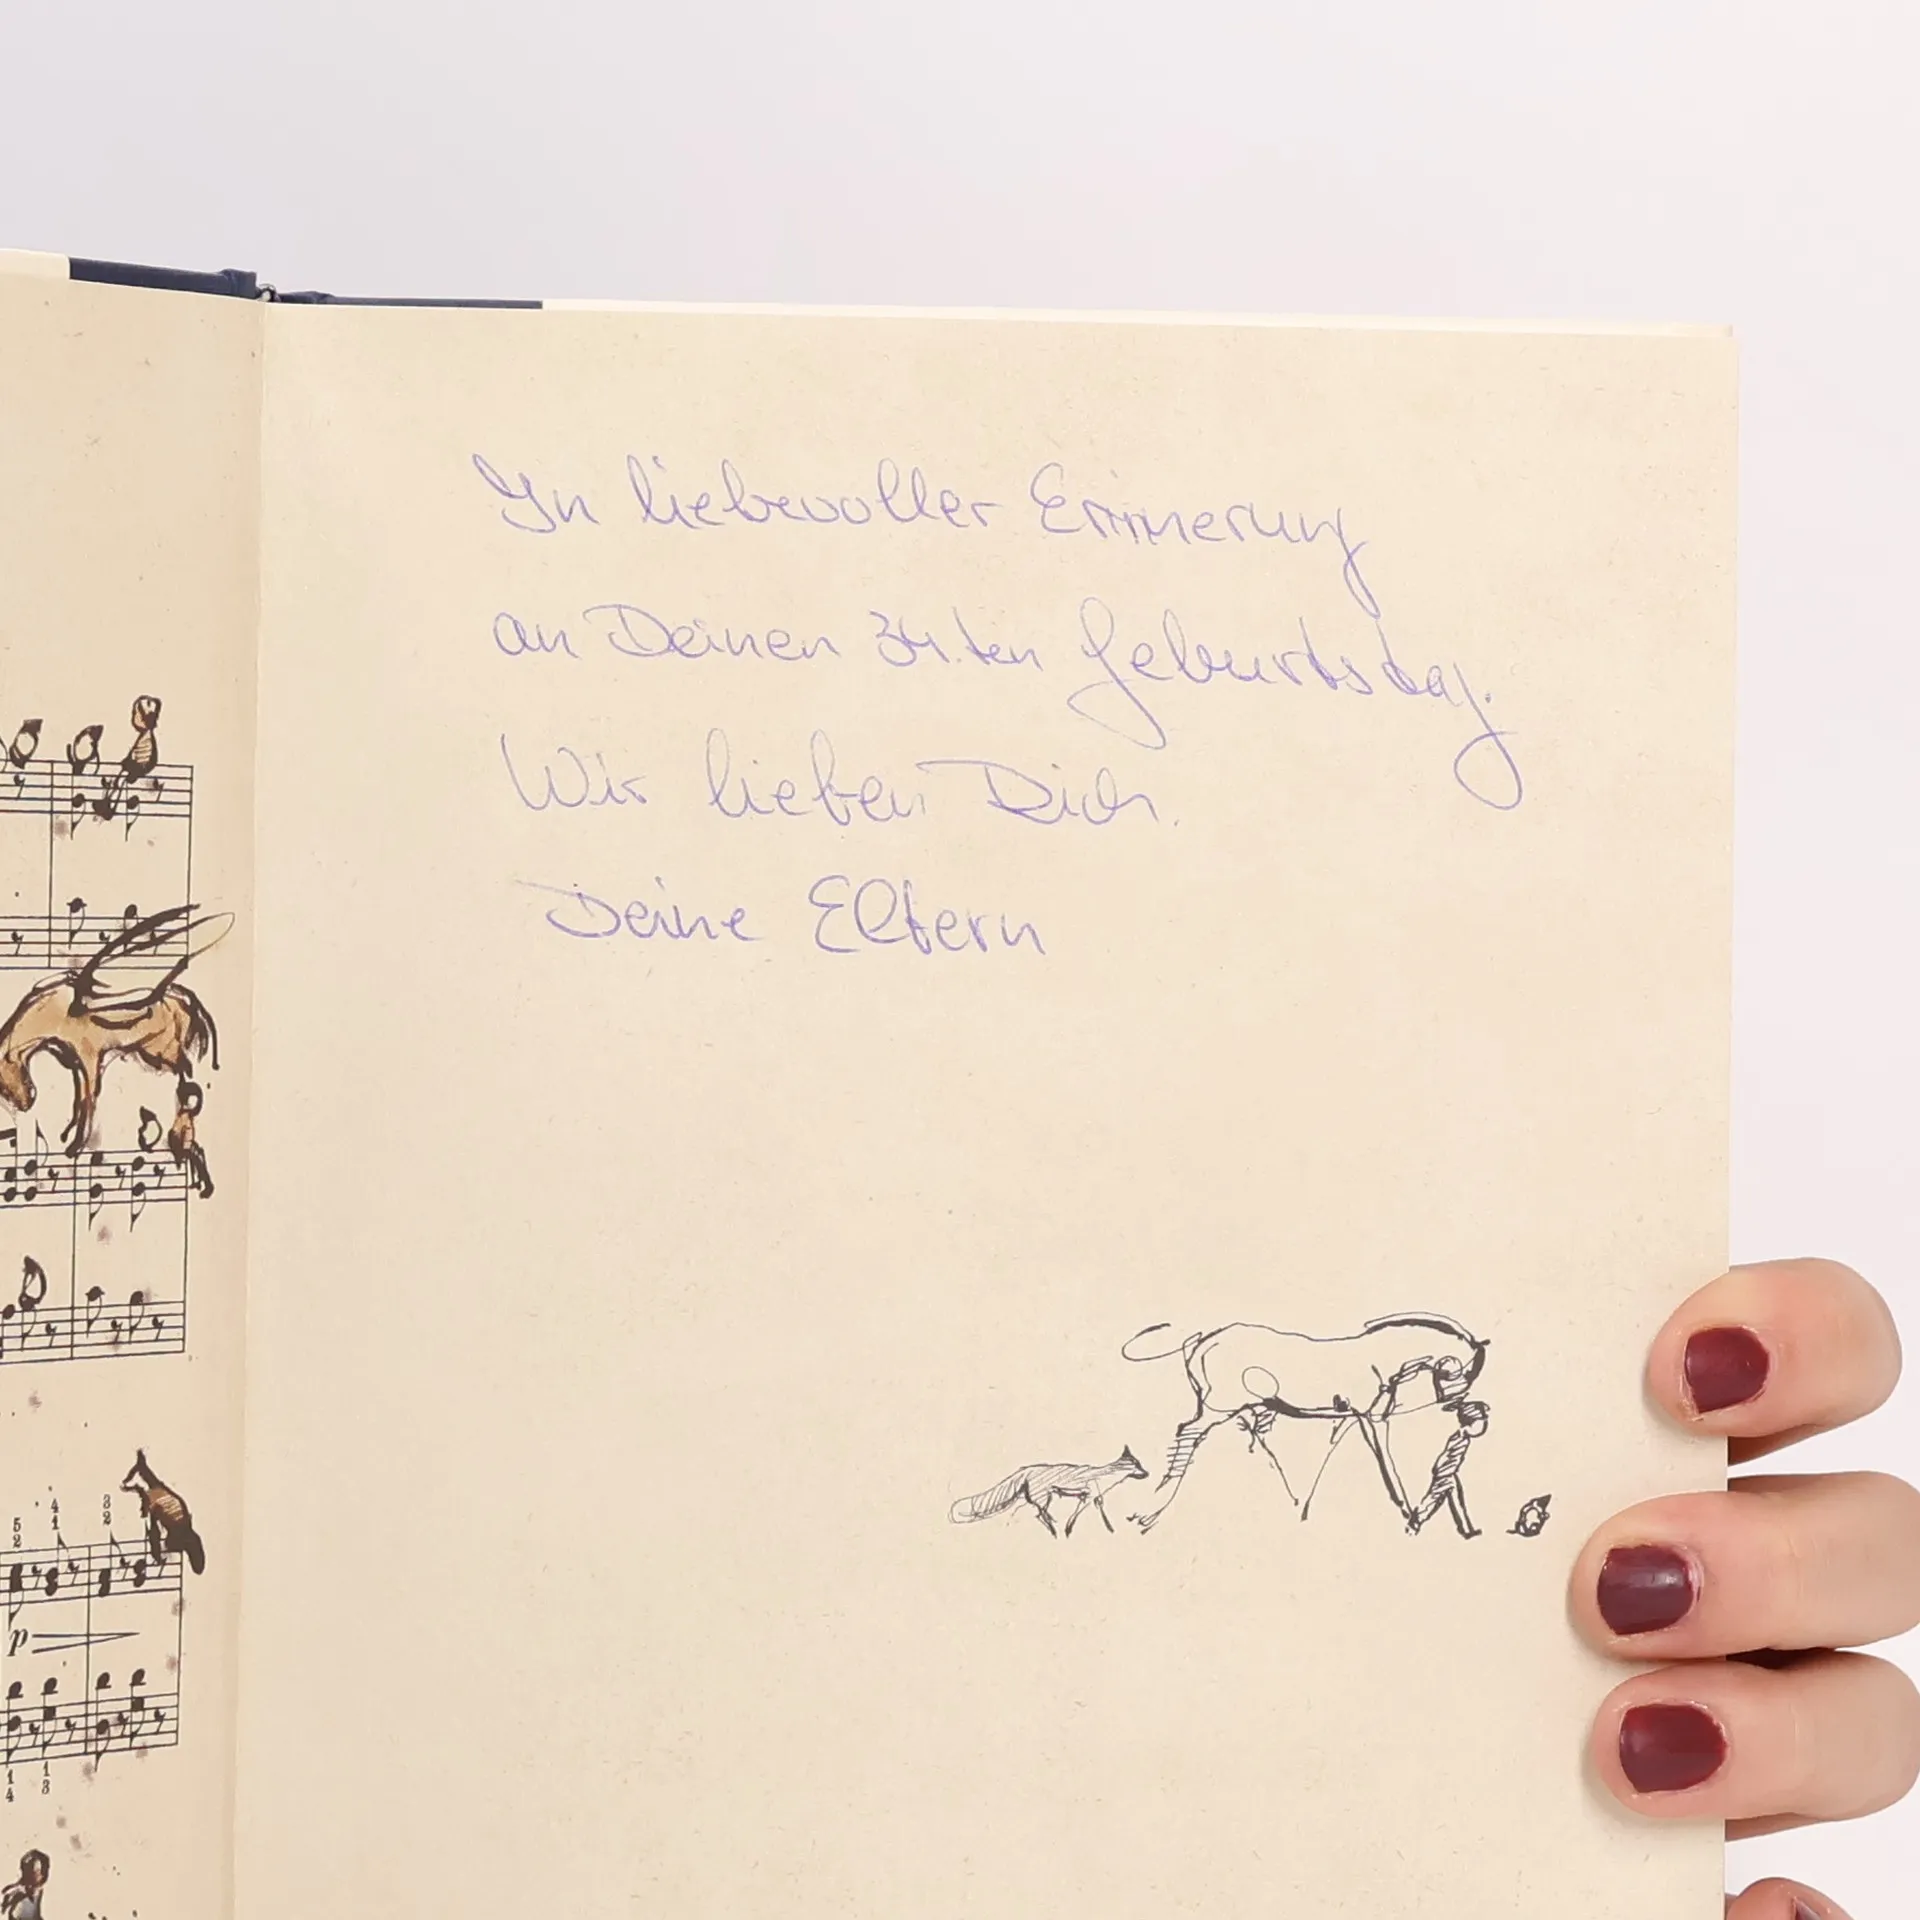 In liebevoller Erinnerung
an Deinen 34.ten Geburtstag.
Wir lieben Dich.
Deine Eltern
5 4 3
2 1 2
p
1 1
4 3